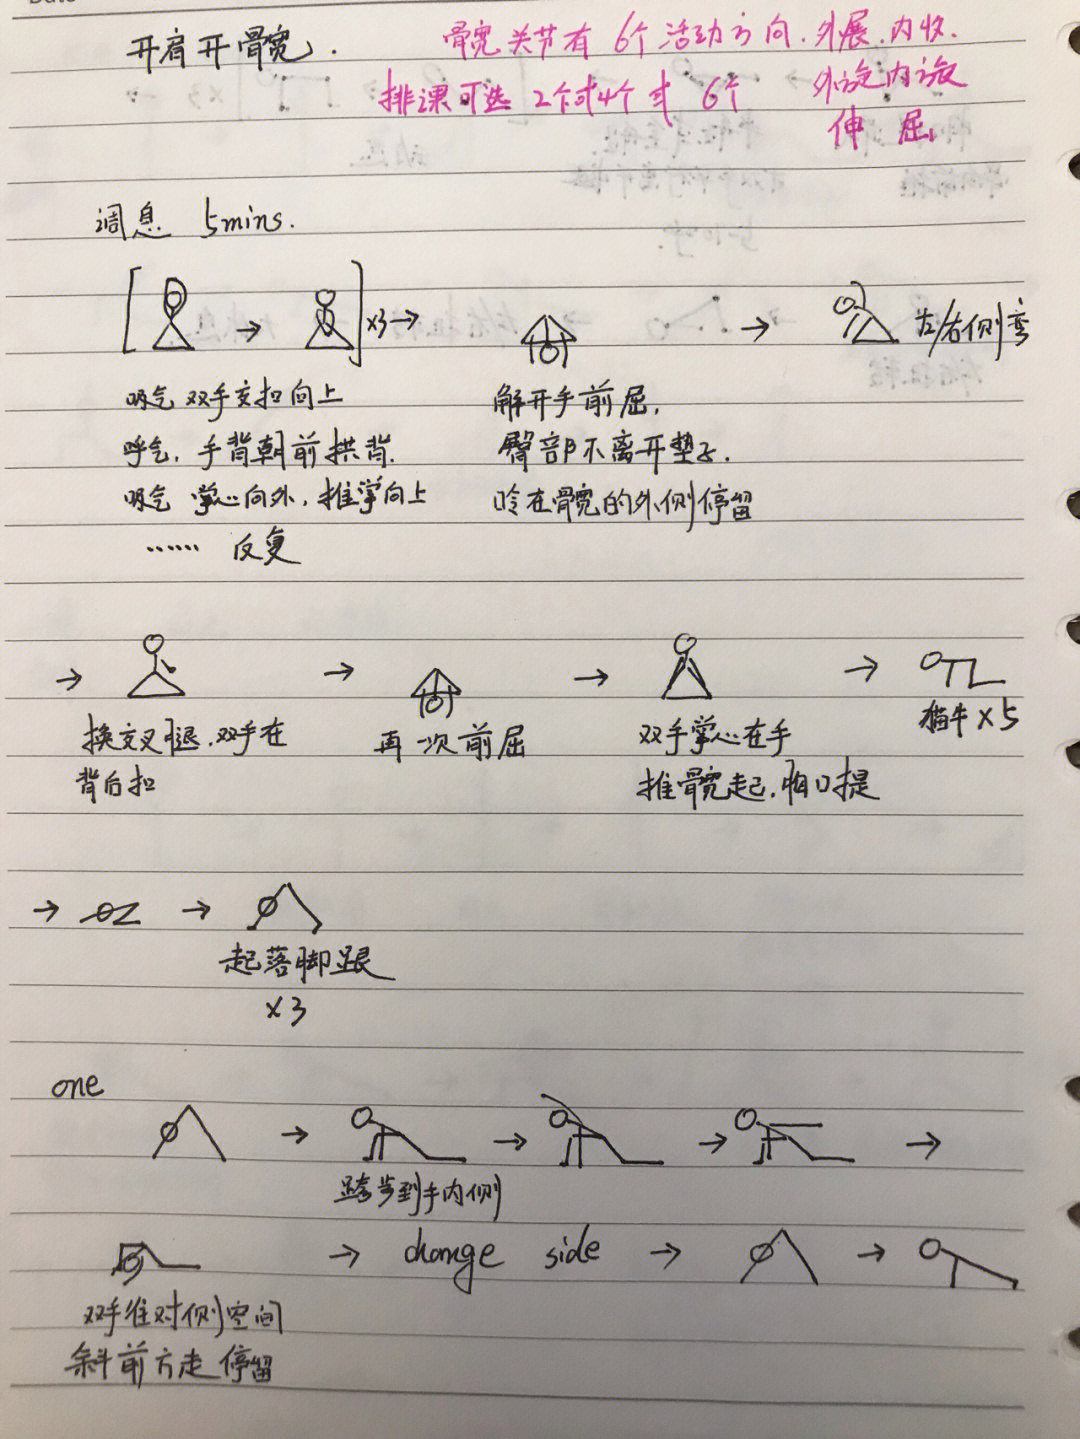 开肩开髋.
髋关节有 6个活动方向. 外展. 内收.
排课可选 2个或4个或 6个 外旋内旋
伸 屈.
调息 5mins.
×3
左/右侧弯
吸气 双手交扣向上
呼气, 手背朝前拱背.
吸气 掌心向外, 推掌向上
…… 反复
解开手前屈,
臀部不离开垫子.
在髋的外侧停留
换交叉腿. 双手在
背后扣
再一次前屈
双手掌心在手
推髋起, 胸口提
猫牛×5
起落脚跟
×3
one
跨步到手内侧
change side
双手往对侧空间
斜前方走 停留